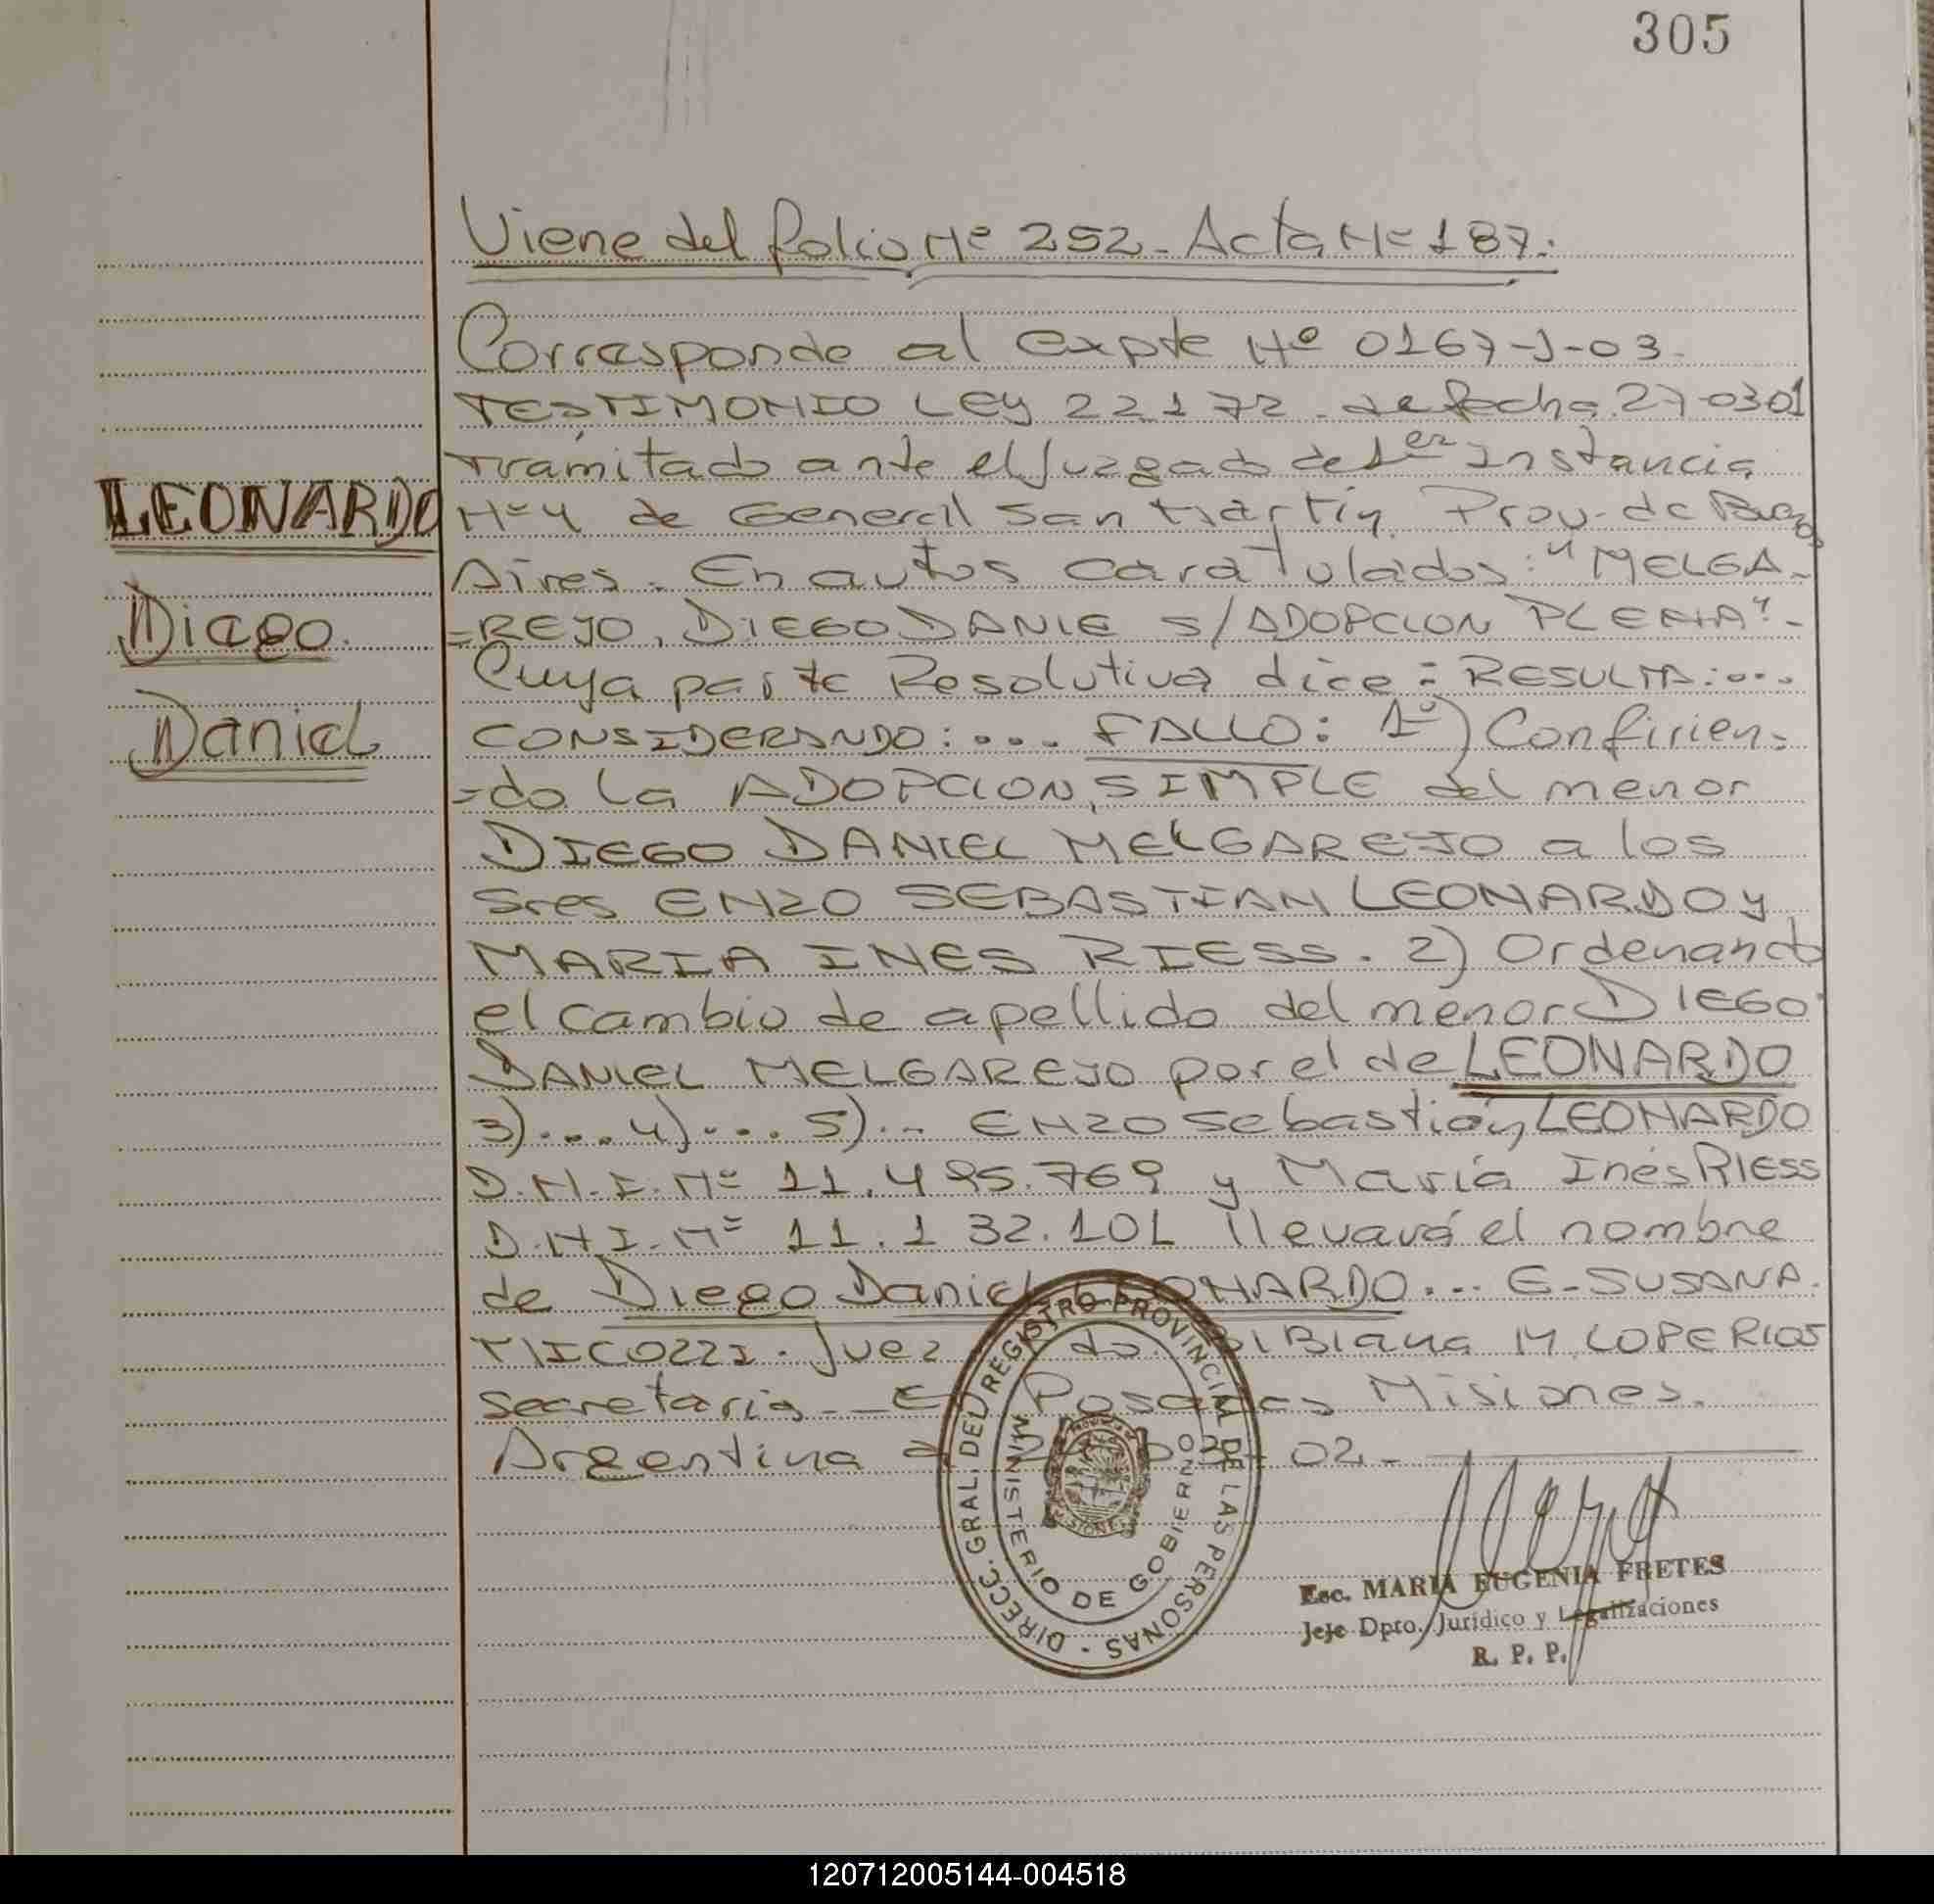 305
Viene del folio Nº 252 - Acta Nº 187.
Corresponde al expte Nº 0167-J-03.
TESTIMONIO LEY 22172 - de fecha 27-0301
Tramitado ante el Juzgado de 1er Instancia
LEONARDO
Nº 4 de General San Martín. Prov. de Buenos
Aires. En autos caratulados: "MELGA-
Diego
=REJO, DIEGO DANIE S/ADOPCION PLENA" -
Cuya parte Resolutiva dice = RESULTA: ...
Daniel
CONSIDERANDO: ... FALLO: 1º) Confirien=
=do la ADOPCION SIMPLE del menor
DIEGO DANIEL MELGAREJO a los
Sres ENZO SEBASTIAN LEONARDO y
MARIA INES RIESS. 2) Ordenando
el cambio de apellido del menor DIEGO
DANIEL MELGAREJO por el de LEONARDO
3) ... 4) ... 5) ... ENZO Sebastián LEONARDO
D.N.I. Nº 11.495.769 y María Inés RIESS
D.N.I. Nº 11.132.101 llevará el nombre
de Diego Daniel LEONARDO ... E. SUSANA
MICOZZI. Juez BIBIANA M. LOPERIOS
Secretaria -- En Posadas Misiones.
Argentina a 02 -
DIRECC. GRAL. DEL REGISTRO PROVINCIAL DE LAS PERSONAS -
MINISTERIO DE GOBIERNO
MISIONES
Esc. MARIA EUGENIA FRETES
Jefe Dpto. Jurídico y Legalizaciones
R. P. P.
120712005144-004518